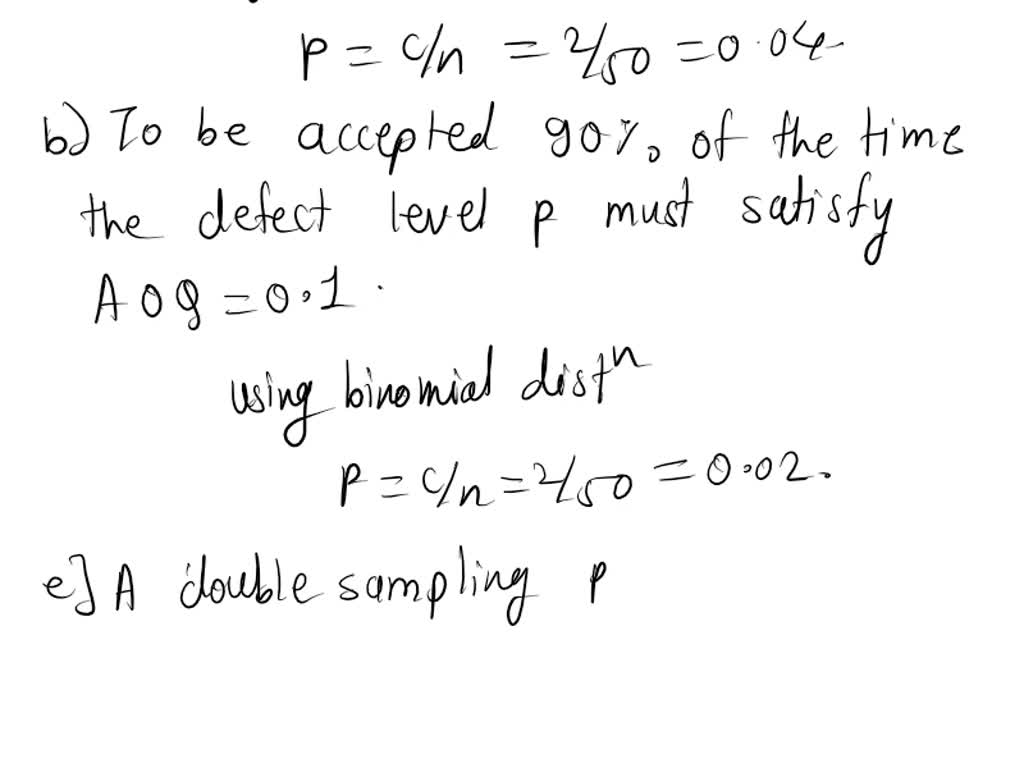 P = c/n = 2/50 = 0.04
b) To be accepted 90% of the time
the defect level p must satisfy
AOQ = 0.1.
using binomial distⁿ
P = c/n = 2/50 = 0.02.
e] A double sampling p